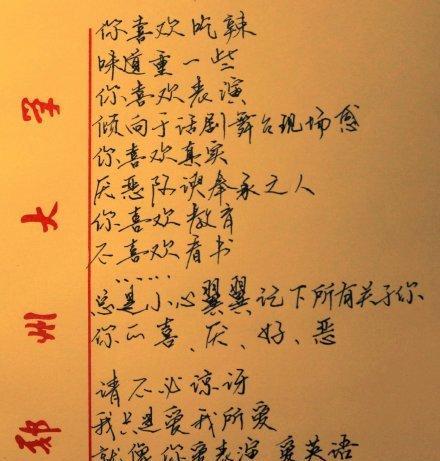 你喜欢吃辣
味道重一些
你喜欢表演
倾向于话剧舞台现场感
你喜欢真实
厌恶阿谀奉承之人
你喜欢教育
不喜欢看书
……
总是小心翼翼记下所有关于你
你的喜、厌、好、恶
请不必惊讶
我只是爱我所爱
就像你爱表演 爱英语
郑州大学